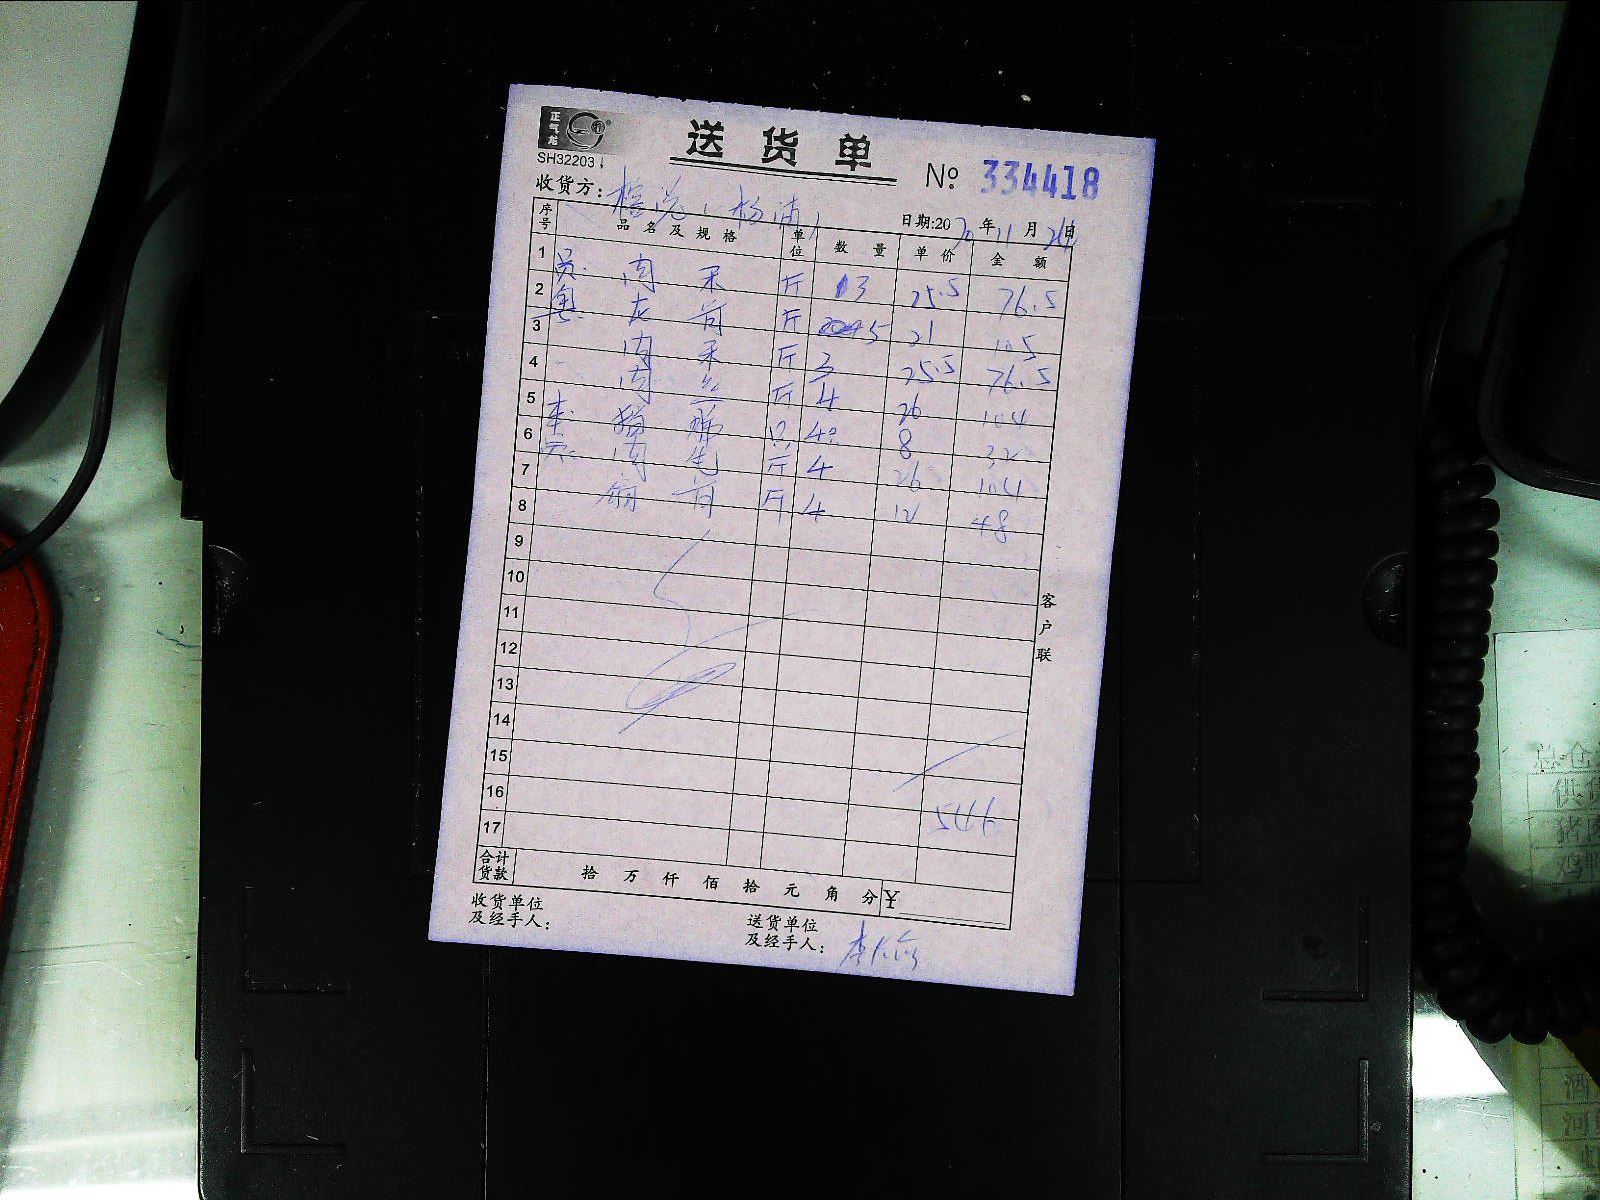 正气龙
送货单
SH32203
№ 334418
收货方: (杨浦)
日期:2020年11月24日
序号 品名及规格 单位 数量 单价 金额
1 员. 肉末 斤 3 25.5 76.5
2 粤. 龙骨 斤 5 21 105
3 肉末 斤 3 25.5 76.5
4 肉丝 斤 4 26 104
5 本. 猪脚 只 4 8 32
6 肉 斤 4 26 104
7 骨 斤 4 12 48
8
9
10
11
12
13
14
15
16 546
17
客户联
合计货款 拾 万 仟 佰 拾 元 角 分 ¥
收货单位
及经手人:
送货单位
及经手人: 李
总仓
供货
猪肉
鸡鸭
酒
河